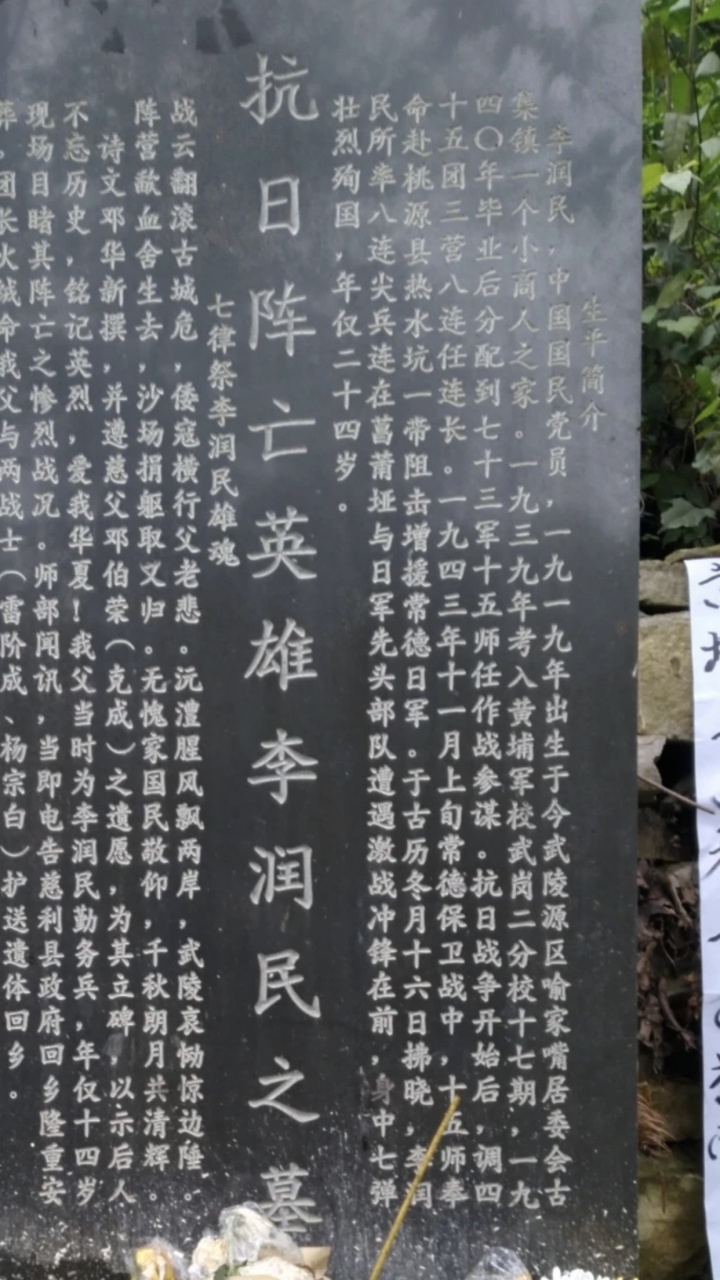 生平简介
李润民，中国国民党员，一九一九年出生于今武陵源区喻家嘴居委会古
集镇一个小商人之家。一九三九年考入黄埔军校武岗二分校十七期，一九
四〇年毕业后分配到七十三军十五师任作战参谋。抗日战争开始后，调四
十五团三营八连任连长。一九四三年十一月上旬常德保卫战中，十五师奉
命赴桃源县热水坑一带阻击增援常德日军。于古历冬月十六日拂晓，李润
民所率八连尖兵连在菖莆垭与日军先头部队遭遇激战冲锋在前，身中七弹
壮烈殉国，年仅二十四岁。
抗日阵亡英雄李润民之墓
七律祭李润民雄魂
战云翻滚古城危，倭寇横行父老悲。沅澧腥风飘两岸，武陵哀恸惊边陲。
阵营歃血舍生去，沙场捐躯取义归。无愧家国民敬仰，千秋朗月共清辉。
诗文邓华新撰，并遵慈父邓伯荣（克成）之遗愿，为其立碑，以示后人
不忘历史，铭记英烈，爱我华夏！我父当时为李润民勤务兵，年仅十四岁
现场目睹其阵亡之惨烈战况。师部闻讯，当即电告慈利县政府回乡隆重安
葬。团长火城命我父与两战士（雷阶成、杨宗白）护送遗体回乡。